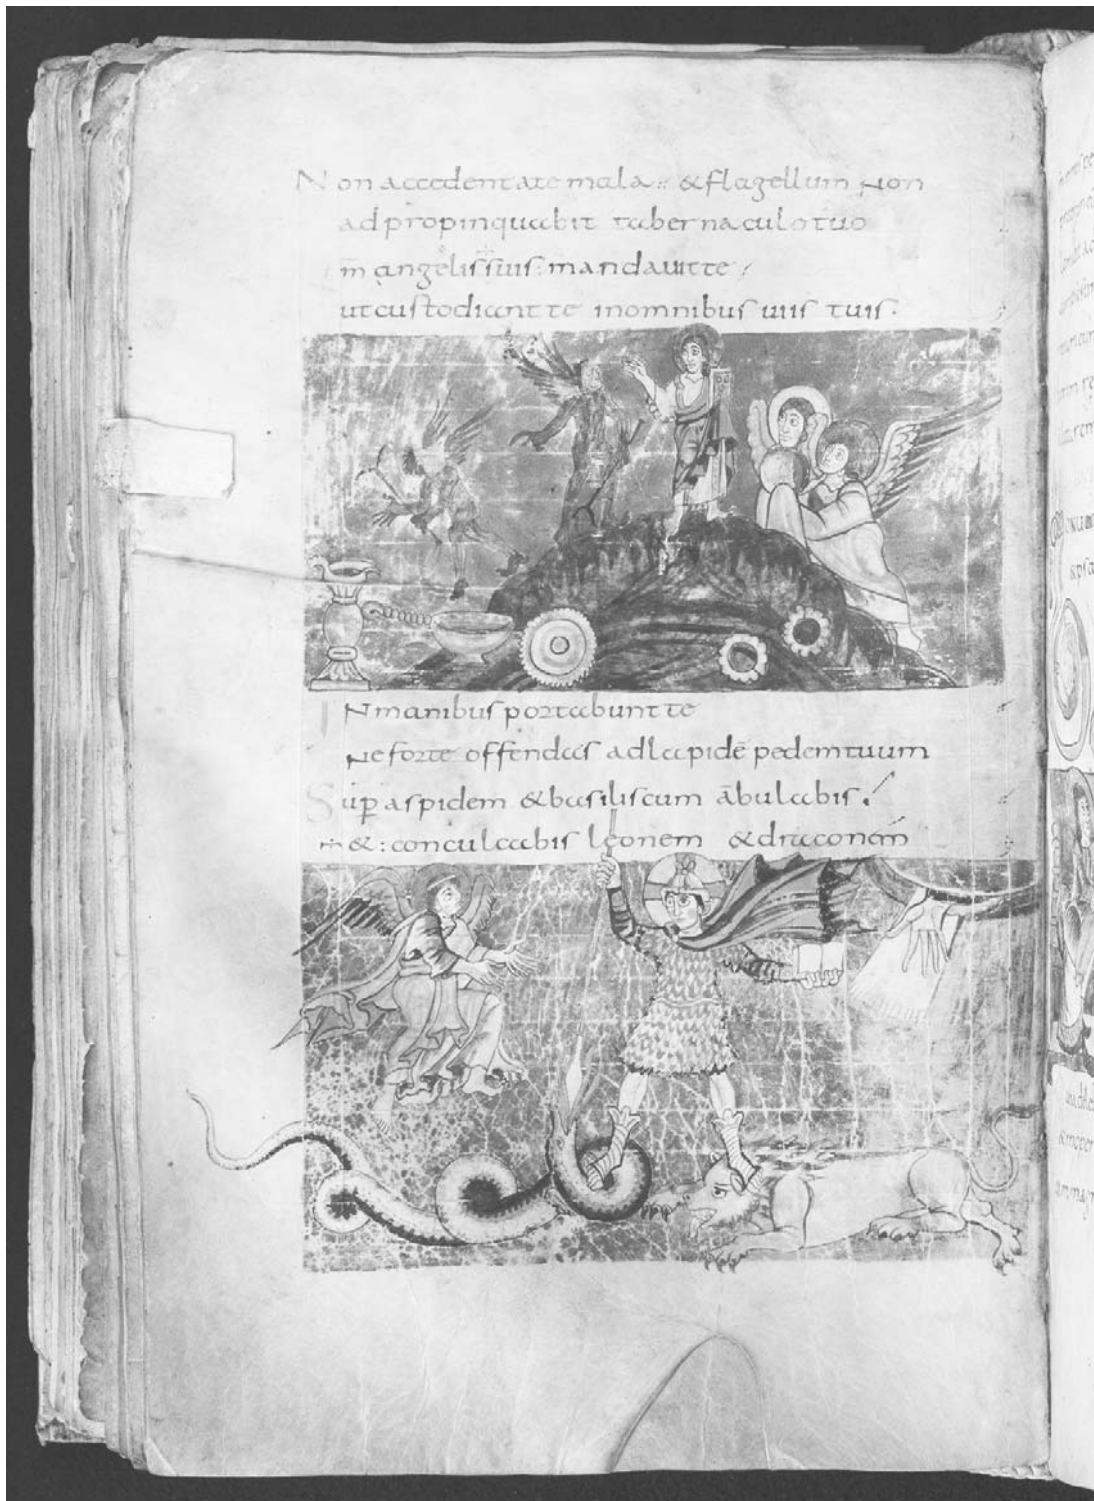 Non accedent ate mala :: & flagellum non
adpropinquabit tabernaculo tuo
m̄ angelis suis : mandavit te /
ut custodiant te in omnibus viis tuis .
IN manibus portabunt te
ne forte offendas ad lapidē pedem tuum
Sup aspidem & basiliscum ābulabis ./
÷ & : conculcabis leonem & draconem